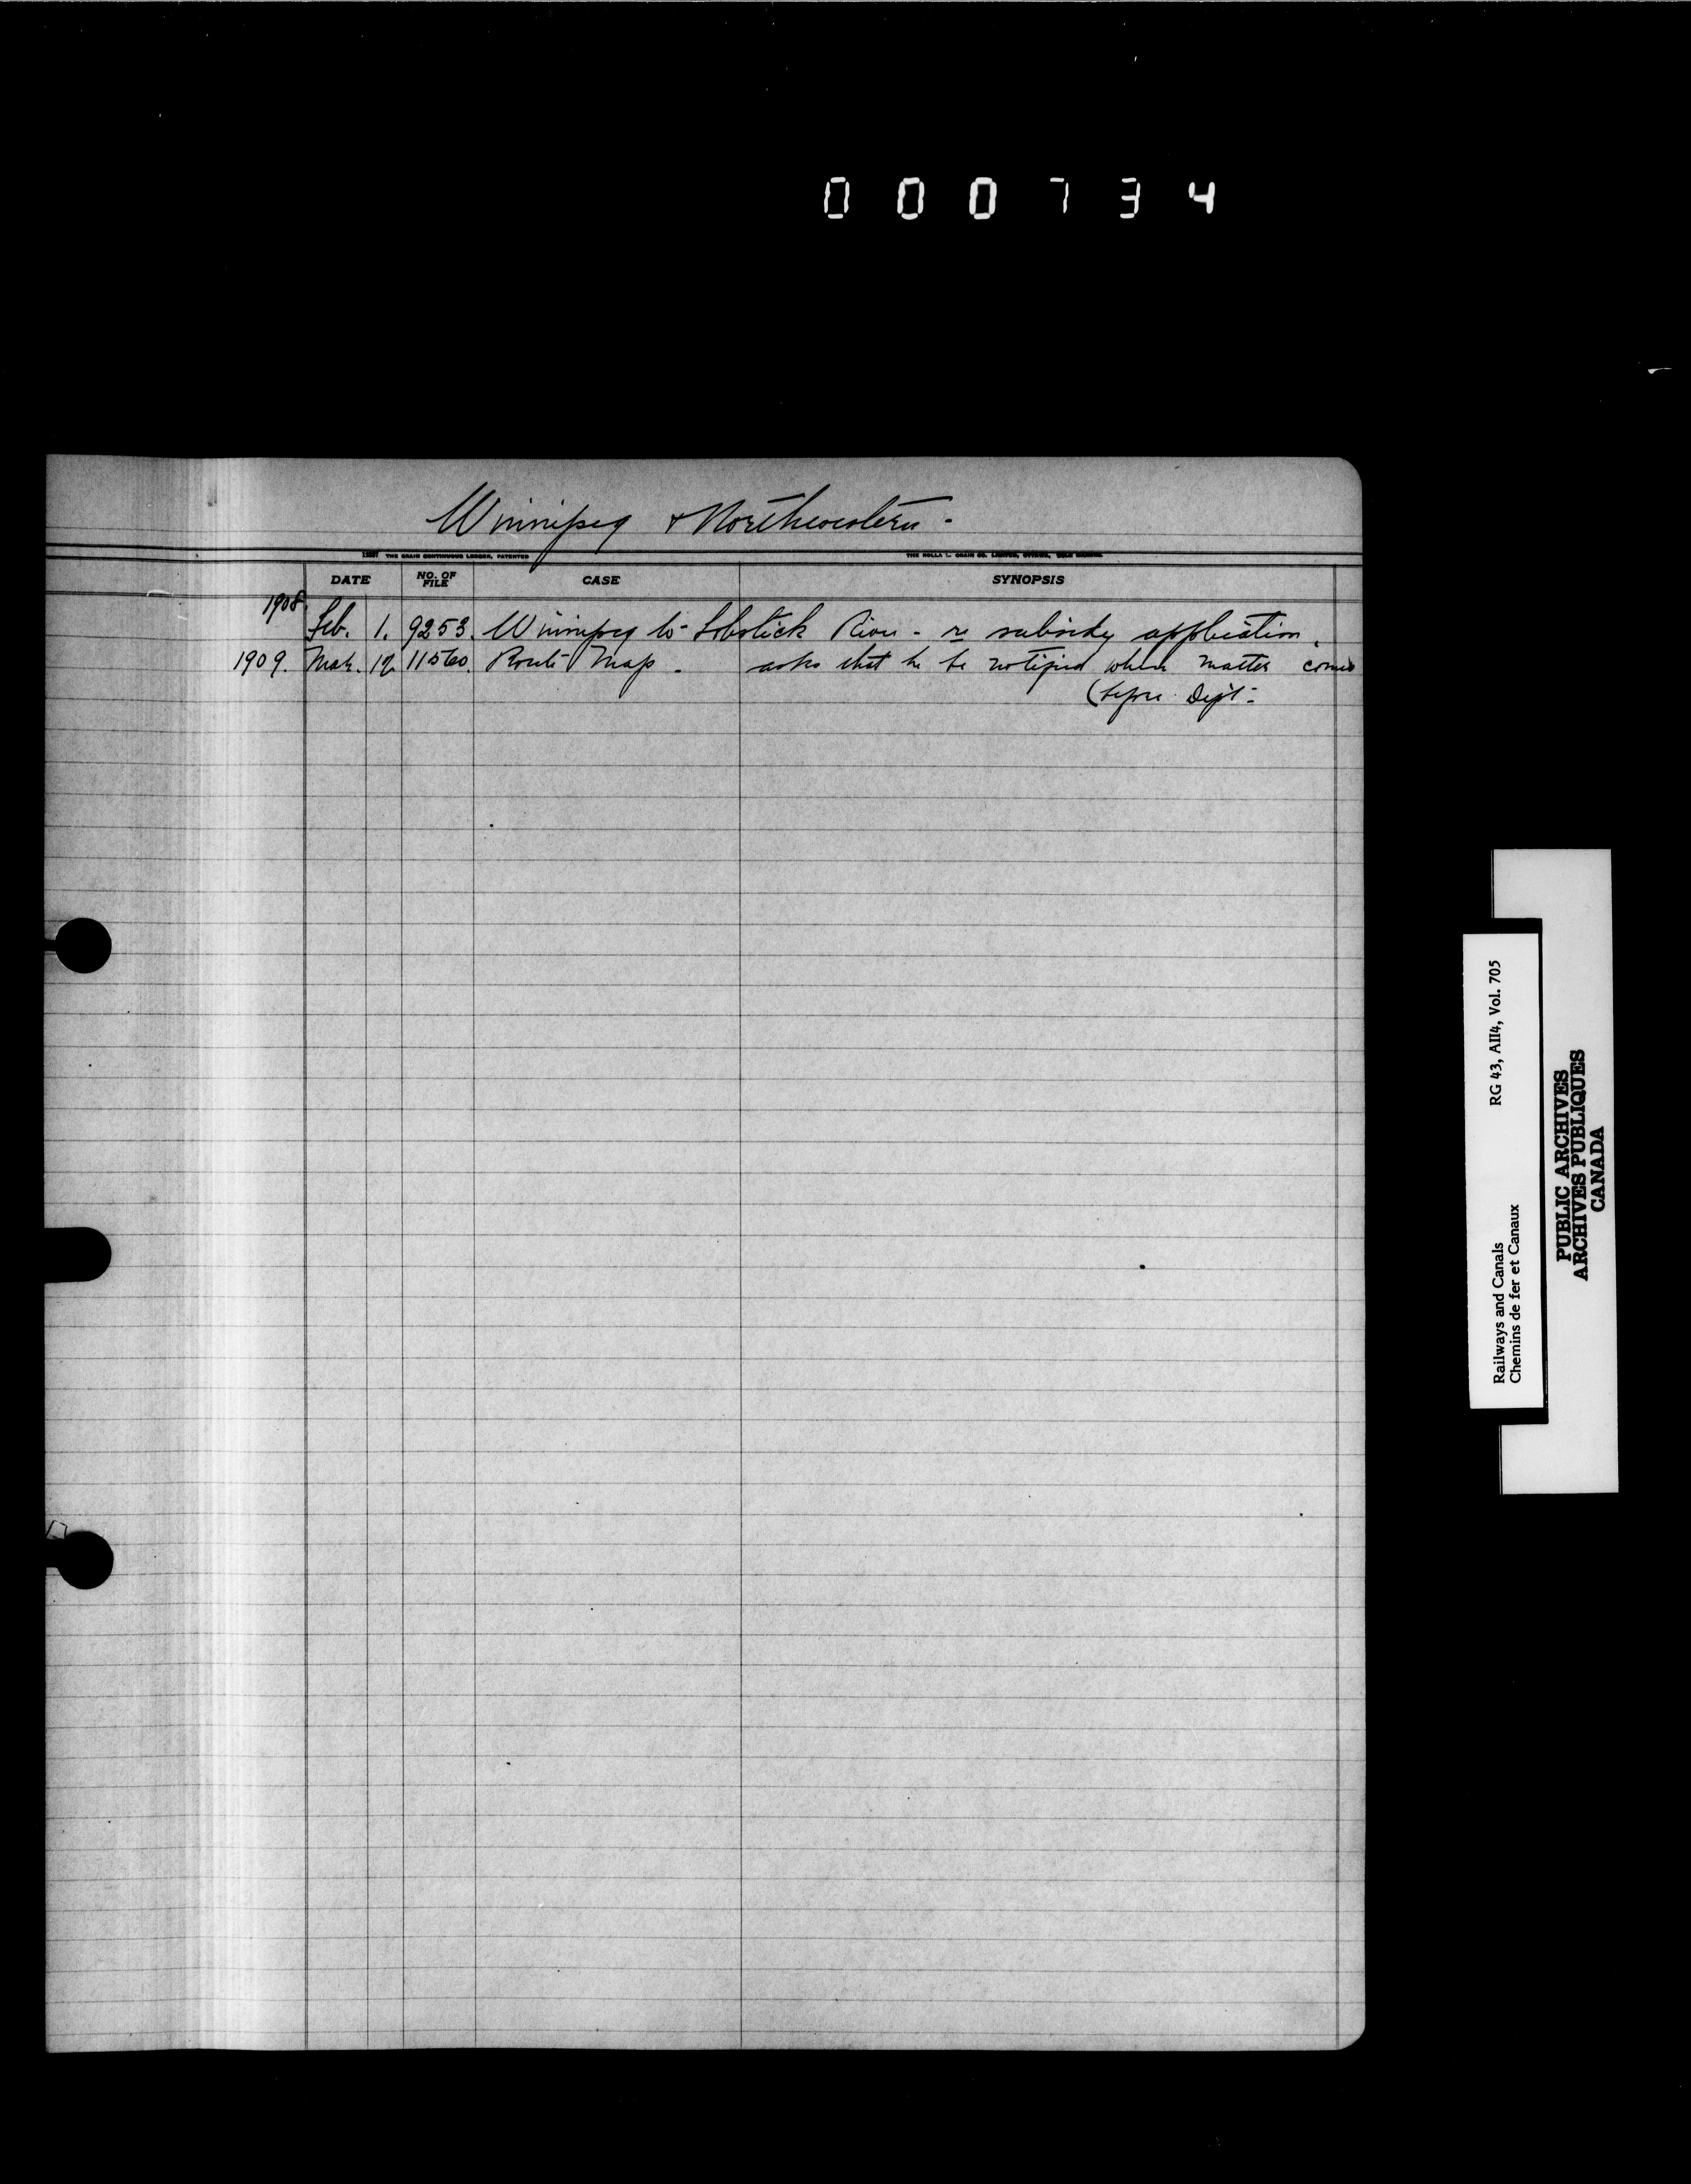 000734
Winnipeg & Northwestern -
THE CRAIN CONTINUOUS LEDGER, PATENTED
THE ROLLA L. CRAIN CO. LIMITED, OTTAWA,
DATE NO. OF FILE CASE SYNOPSIS
1908 Feb. 1. 9253. Winnipeg to Lobstick River - re subsidy application.
1909. Mar. 12 11560. Route Map. asks that he be notified when matter comes
(before Dept.
Railways and Canals RG 43, AII4, Vol. 705
Chemins de fer et Canaux
PUBLIC ARCHIVES
ARCHIVES PUBLIQUES
CANADA